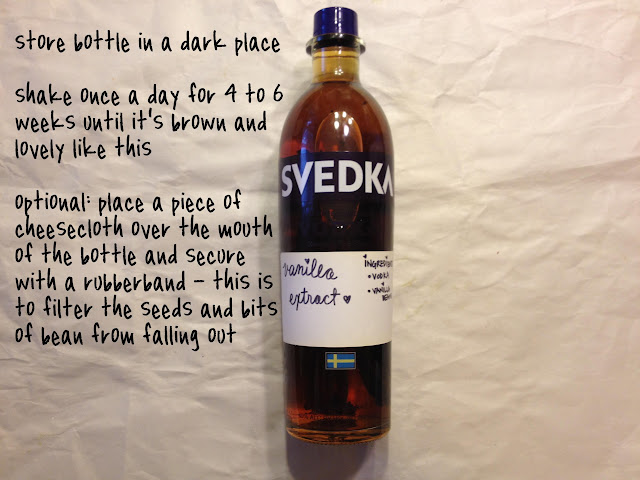 store bottle in a dark place
shake once a day for 4 to 6
weeks until it's brown and
lovely like this
optional: place a piece of
cheesecloth over the mouth
of the bottle and secure
with a rubberband - this is
to filter the seeds and bits
of bean from falling out
SVEDKA
vanilla
extract
• VODKA
• VANILLA